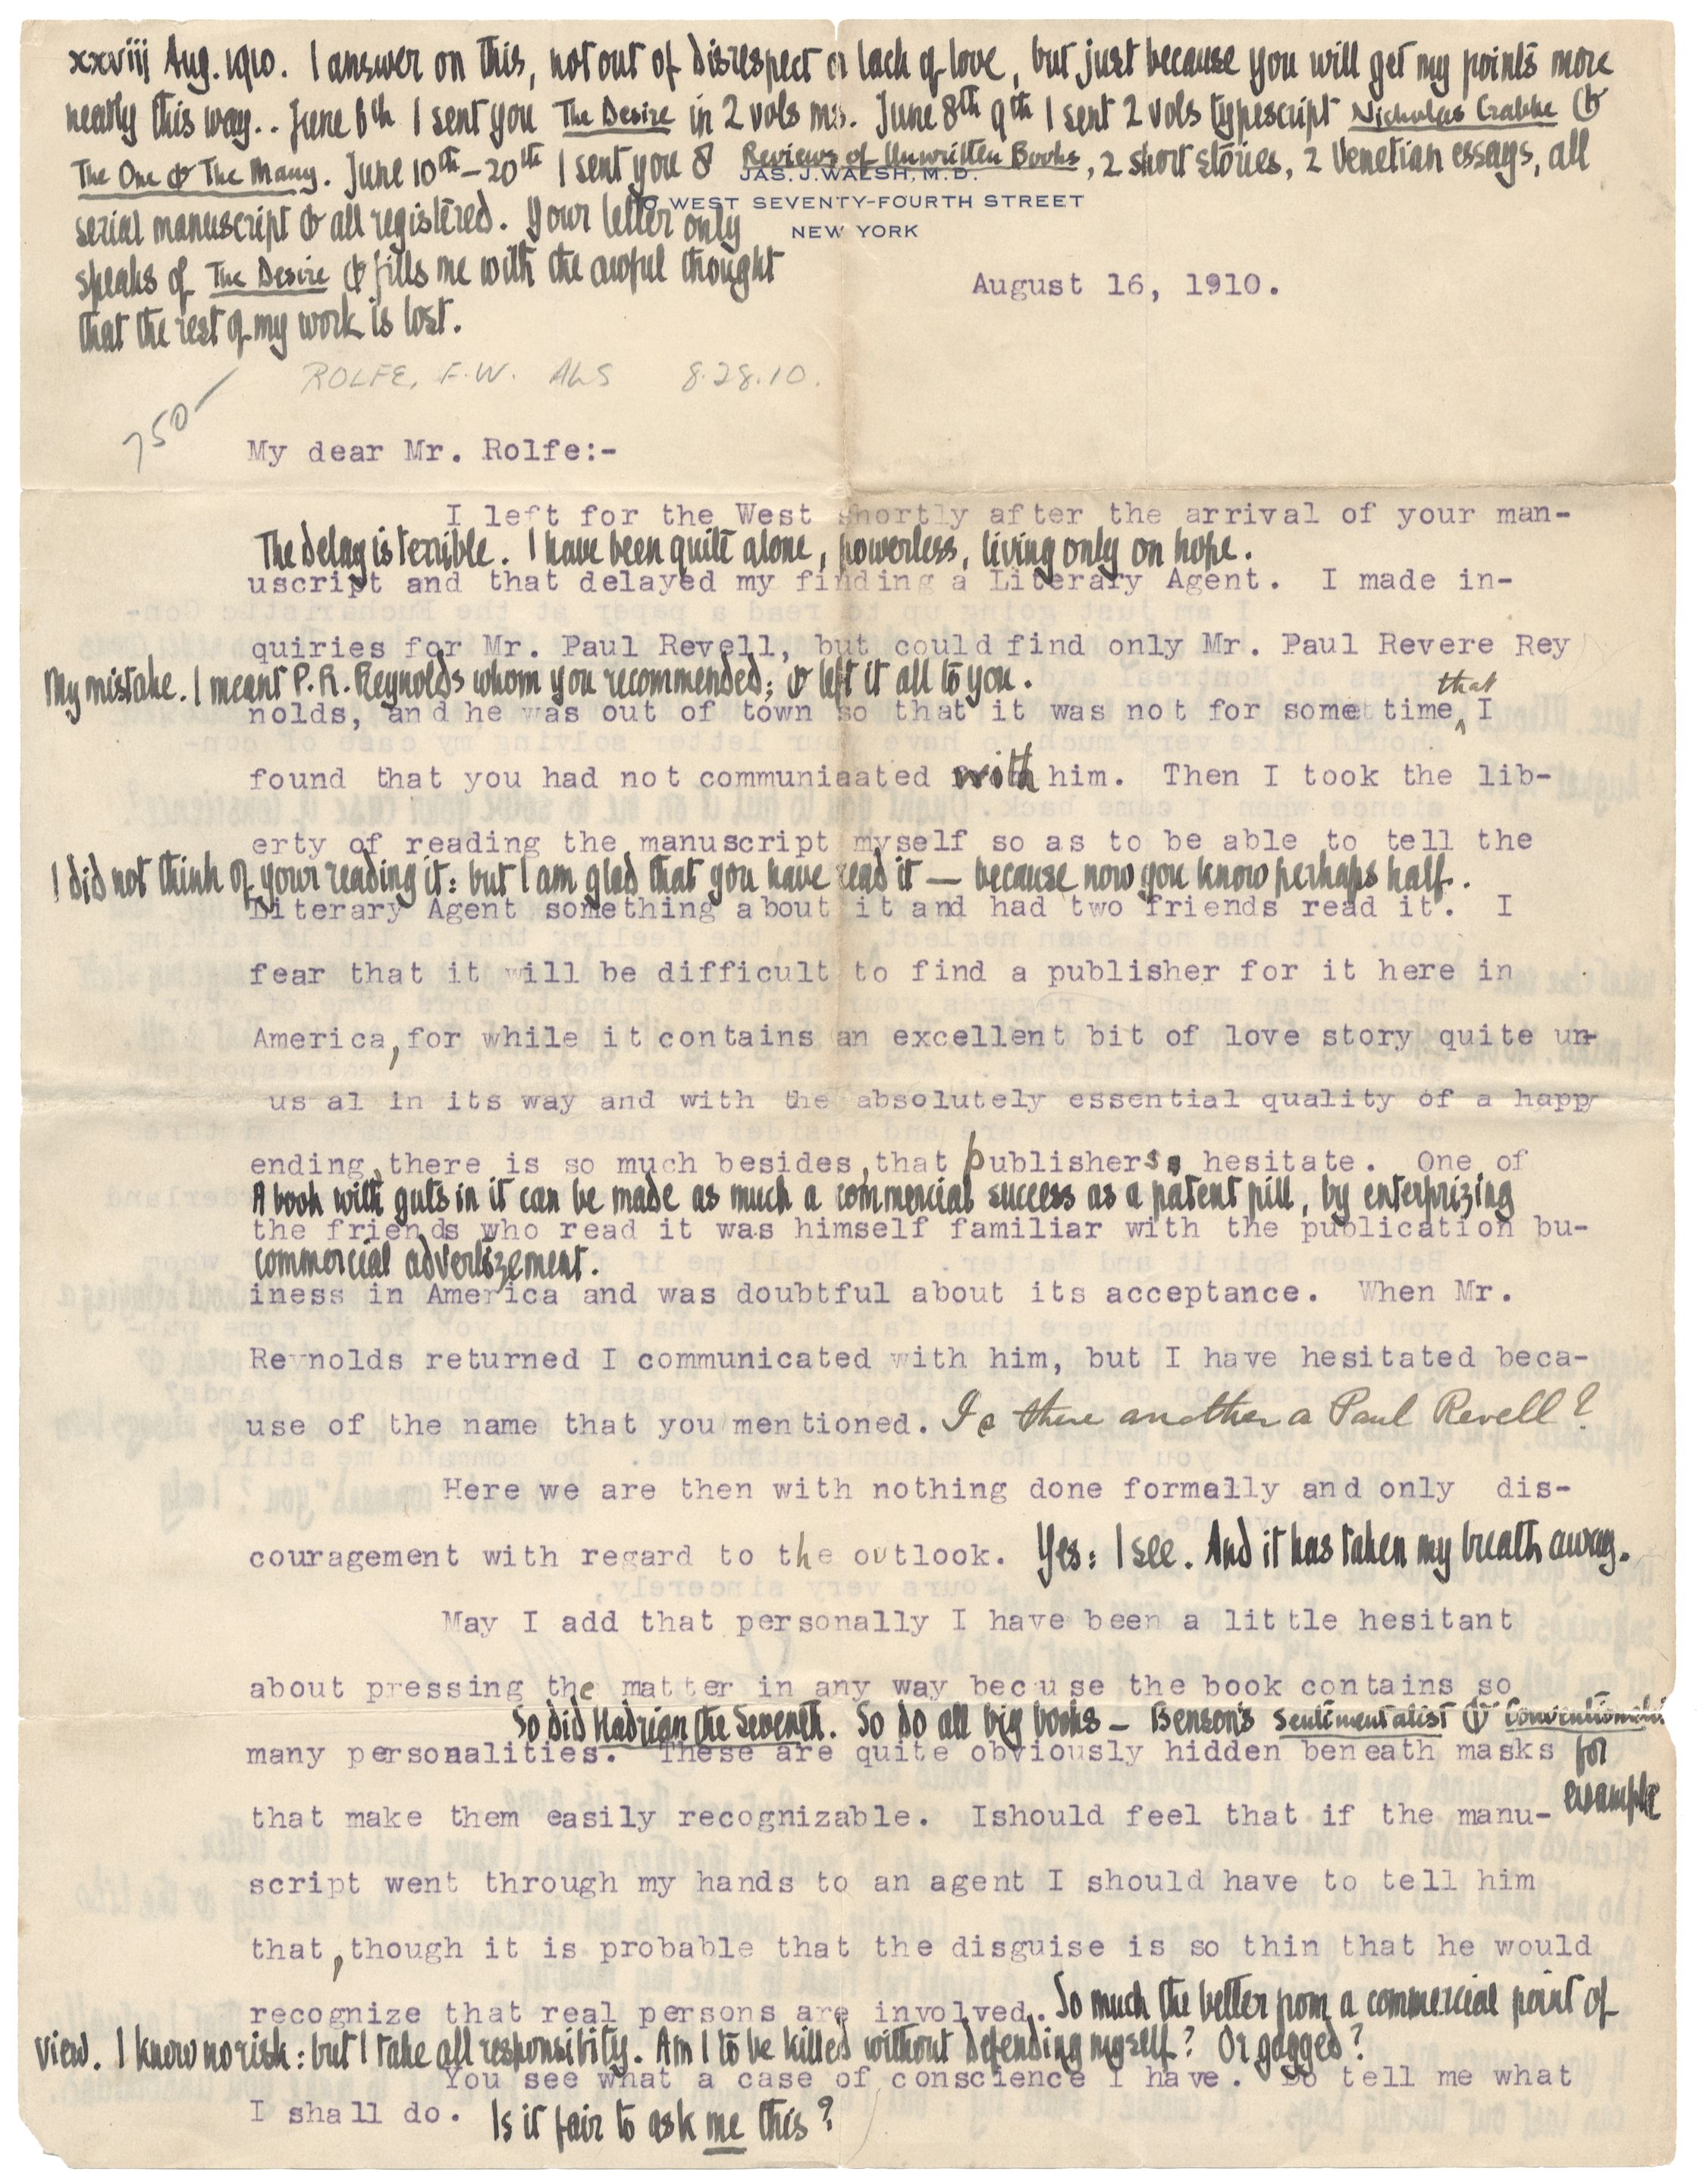 xxviij Aug. 1910. I answer on this, not out of disrespect or lack of love, but just because you will get my points more
neatly this way.. June 6th I sent you The Desire in 2 vols ms. June 8th 9th I sent 2 vols typescript Nicholas Crabbe &
The One & The Many. June 10th - 20th I sent you 8 Reviews of Unwritten Books, 2 short stories, 2 Venetian essays, all
JAS. J. WALSH, M.D.
WEST SEVENTY-FOURTH STREET
serial manuscript & all registered. Your letter only
NEW YORK
speaks of The Desire & fills me with the awful thought
August 16, 1910.
that the rest of my work is lost.
ROLFE, F.W. ALS 8.28.10.
750-
My dear Mr. Rolfe:-
I left for the West shortly after the arrival of your man-
The delay is terrible. I have been quite alone, powerless, living only on hope.
uscript and that delayed my finding a Literary Agent. I made in-
quiries for Mr. Paul Revell, but could find only Mr. Paul Revere Rey
My mistake. I meant P.R. Reynolds whom you recommended; & left it all to you.
that
nolds, and he was out of town so that it was not for some time, I
found that you had not communiaated with him. Then I took the lib-
erty of reading the manuscript myself so as to be able to tell the
I did not think of your reading it: but I am glad that you have read it — because now you know perhaps half.
Literary Agent something about it and had two friends read it. I
fear that it will be difficult to find a publisher for it here in
America, for while it contains an excellent bit of love story quite un-
us al in its way and with the absolutely essential quality of a happ
ending, there is so much besides, that publishers, hesitate. One of
A book with guts in it can be made as much a commercial success as a patent pill, by enterprizing
the friends who read it was himself familiar with the publication bu-
commercial advertizement.
iness in America and was doubtful about its acceptance. When Mr.
Reynolds returned I communicated with him, but I have hesitated beca-
use of the name that you mentioned. Is there another a Paul Revell?
Here we are then with nothing done formally and only dis-
couragement with regard to the outlook. Yes: I see. And it has taken my breath away.
May I add that personally I have been a little hesitant
about pressing the matter in any way becuse the book contains so
So did Hadrian the Seventh. So do all big books - Benson's Sentimentalist & Conventionalists
many personalities. These are quite obviously hidden beneath masks for
that make them easily recognizable. Ishould feel that if the manu- example
script went through my hands to an agent I should have to tell him
that, though it is probable that the disguise is so thin that he would
recognize that real persons are involved. So much the better from a commercial point of
view. I know no risk: but I take all responsibility. Am I to be killed without defending myself? Or gagged?
You see what a case of conscience I have. Do tell me what
I shall do. Is it fair to ask me this?